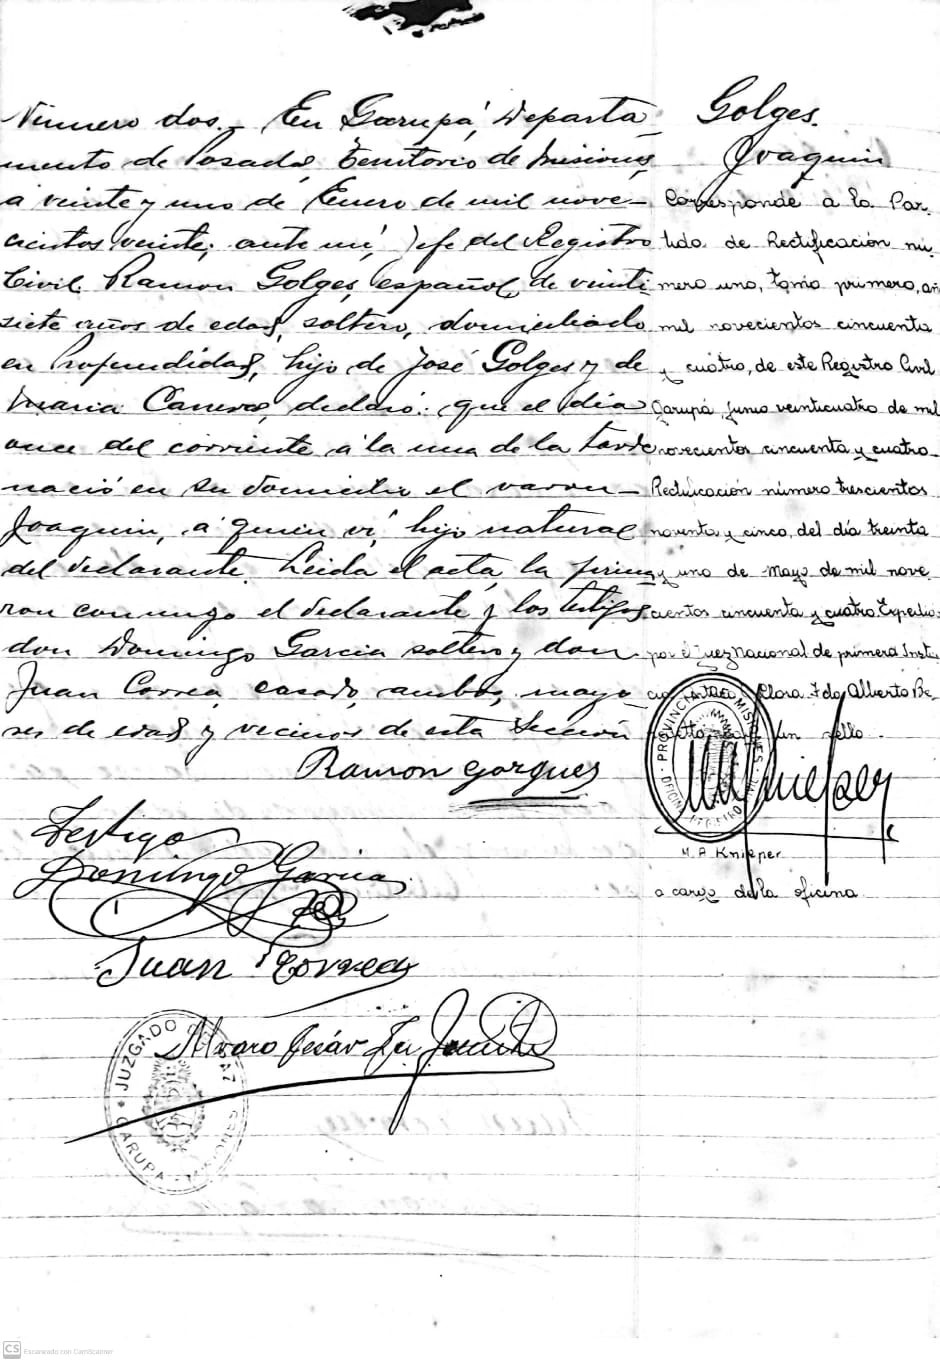 Número dos.- En Garupá, Departa-
mento de Posadas, Territorio de Misiones,
a veinte y uno de Enero de mil nove-
cientos veinte, ante mí, Jefe del Registro
Civil, Ramon Golges, español, de veinti
siete años de edad, soltero, domiciliado
en Profundidad, hijo de José Golges y de
Maria Caneros, declaró: que el día
once del corriente a la una de la tarde
nació en su domicilio el varon-
Joaquin, a quien ví, hijo natural
del declarante. Leida el acta, la firma
ron conmigo el declarante y los testigos
don Domingo Garcia soltero y don
Juan Correa, casado, ambos, mayo-
res de edad y vecinos de esta Sección
Ramon gorgues
Testigo
Domingo Garcia
Juan Correa
Alvaro
JUZGADO DE PAZ
GARUPA - MISIONES
Golges.
Joaquin
Corresponde a la Par-
tida de Rectificación nú-
mero uno, tomo primero, año
mil novecientos cincuenta
y cuatro, de este Registro Civil
Garupá, junio veinticuatro de mil
novecientos cincuenta y cuatro-
Rectificación número trescientos
noventa y cinco, del día treinta
y uno de Mayo de mil nove
cientos cincuenta y cuatro. Expedido
por el Juez Nacional de primera Insta
Fdo Alberto
un sello.
PROVINCIA DE MISIONES
OFICINA REGISTRO CIVIL
M. A. Knieper
a cargo de la oficina
CS Escaneado con CamScanner